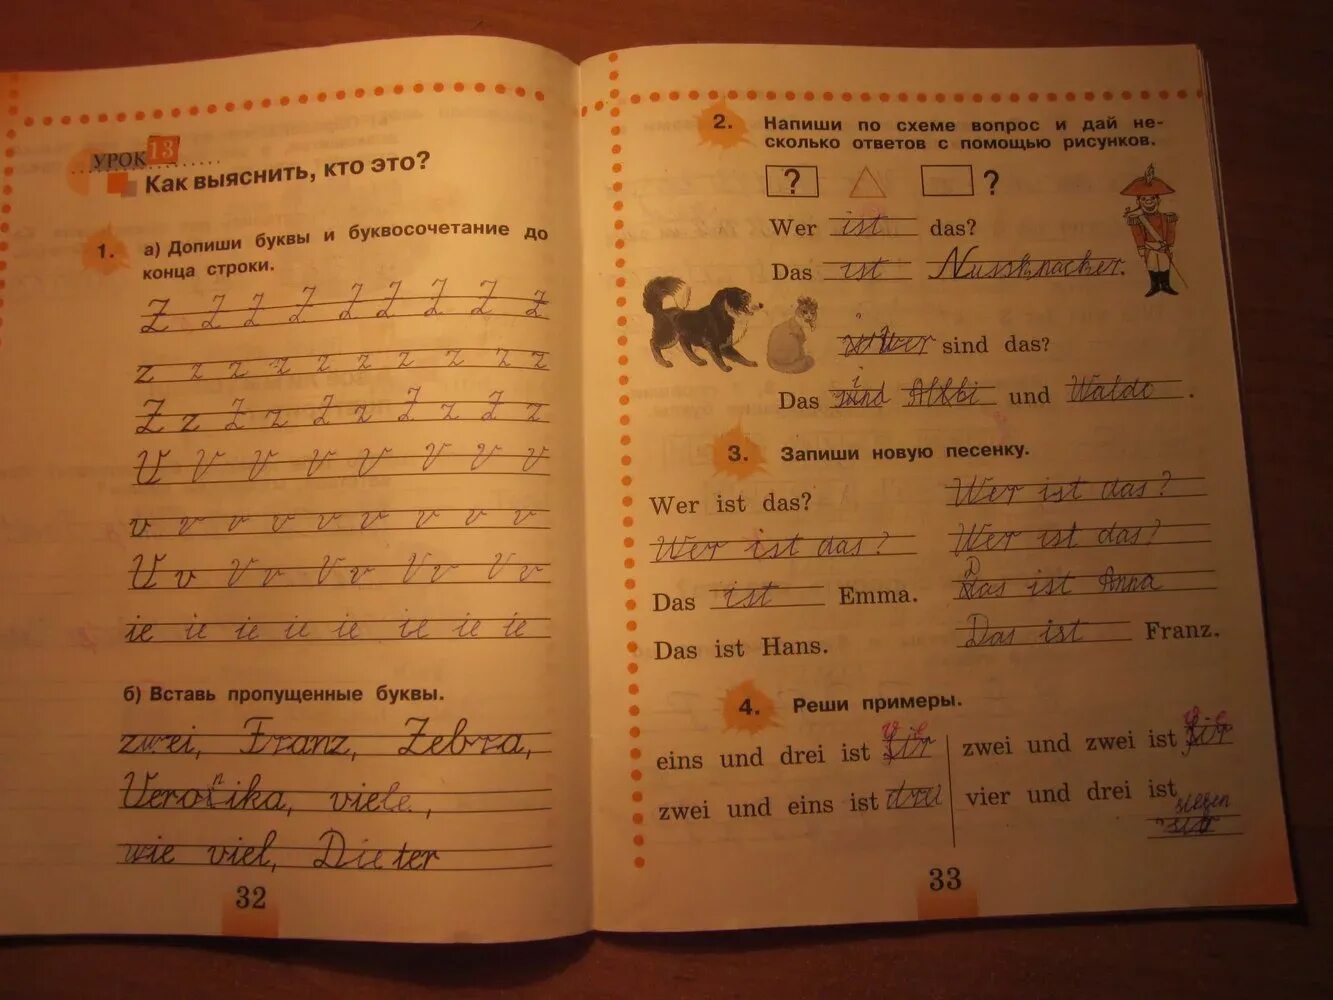 УРОК 13
Как выяснить, кто это?
1. а) Допиши буквы и буквосочетание до
конца строки.
Z Z Z Z Z Z Z Z Z
z z z z z z z z z
Z z Z z Z z Z z Z z
V V V V V V V V
v v v v v v v v v
V v V v V v V v V v
ie ie ie ie ie ie ie ie
б) Вставь пропущенные буквы.
zwei, Franz, Zebra,
Veronika, viele,
wie viel, Dieter
32
2. Напиши по схеме вопрос и дай не-
сколько ответов с помощью рисунков.
? ?
Wer ist das?
Das ist Nussknacker.
Wer sind das?
Das sind und Waldo.
3. Запиши новую песенку.
Wer ist das? Wer ist das?
Wer ist das? Wer ist das?
Das ist Emma. Das ist Anna
Das ist Hans. Das ist Franz.
4. Реши примеры.
eins und drei ist vier zwei und zwei ist vier
zwei und eins ist drei vier und drei ist
33